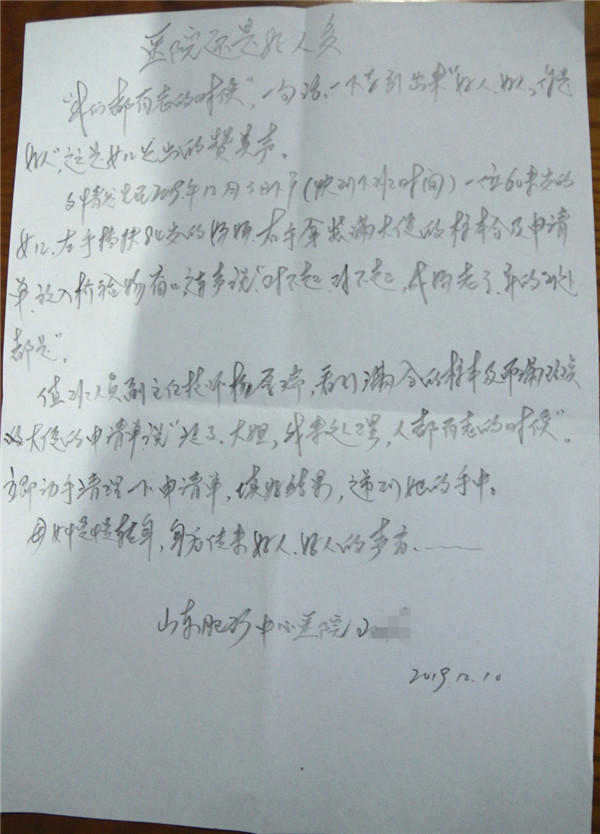 医院还是好人多
"我们都有老的时候",一句话,一下子引出来"好人、好人、真是
好人",这是女儿发出的赞美声。
事情发生在2019年12月3日下午(快到下班时间)一位60来岁的
女儿,左手搀扶84岁的妈妈,右手拿装满大便的标本盒及申请
单,放入检验窗口,连声说"对不起,对不起,我妈老了,弄的到处
都是"。
值班人员副主任技师杨,看到满盒的标本及沾满
大便的申请单说"没事,大姐,我来处理,人都有老的时候"。
立即动手清理一下申请单,填好结果,递到她的手中。
母女慢慢转身,身后传来好人、好人的声音……
山东肥城中心医院
2019.12.10